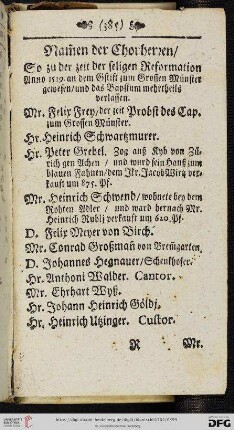 (385)
Namen der Chorherren/
So zu der zeit der seligen Reformation
Anno 1519. an dem Gstift zum Großen Münster
gewesen/ und das Bapstum mehrtheils
verlassen.
Mr. Felix Frey/ der zeit Probst des Cap.
zum Großen Münster.
Hr. Heinrich Schwartzmurer.
Hr. Peter Grebel. Zog auß Kyb von Zü-
rich gen Achen / und ward sein Hauß zum
blauen Fahnen/ dem Jkr. Jacob Wirz ver-
kauft um 875. Pf.
Mr. Heinrich Schwend/ wohnete bey dem
Rohten Adler / und ward hernach Mr.
Heinrich Nublj verkauft um 620. Pf.
D. Felix Meyer von Birch.
Mr. Conrad Großman von Bremgarten.
D. Johannes Hegnauer/ Schenkhofer.
Hr. Anthoni Walder. Cantor.
Mr. Ehrhart Wyß.
Hr. Johann Heinrich Göldj.
Hr. Heinrich Utzinger. Custor.
R Mr.